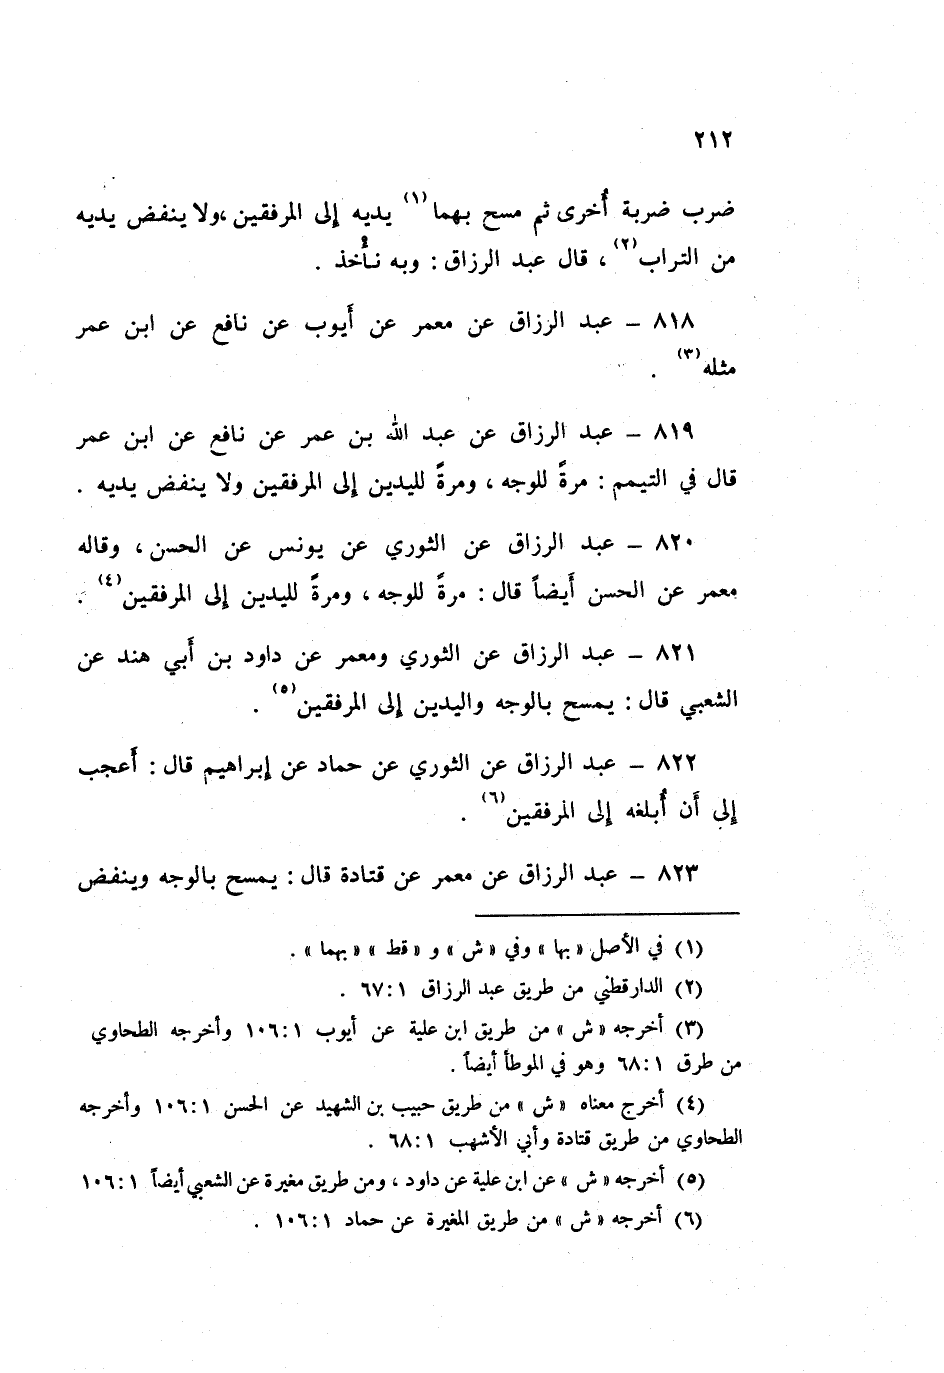 ٢١٢
ضرب ضربة أخرى ثم مسح بهما(١) يديه إلى المرفقين ،ولا ينفض يديه
من التراب(٢) ، قال عبد الرزاق : وبه نأُخذ .
٨١٨ – عبد الرزاق عن معمر عن أيوب عن نافع عن ابن عمر
مثله(٣) .
٨١٩ – عبد الرزاق عن عبد الله بن عمر عن نافع عن ابن عمر
قال في التيمم : مرةً للوجه ، ومرةً لليدين إلى المرفقين ولا ينفض يديه .
٨٢٠ – عبد الرزاق عن الثوري عن يونس عن الحسن ، وقاله
معمر عن الحسن أيضاً قال : مرةً للوجه ، ومرةً لليدين إلى المرفقين(٤) .
٨٢١ – عبد الرزاق عن الثوري ومعمر عن داود بن أبي هند عن
الشعبي قال : يمسح بالوجه واليدين إلى المرفقين(٥) .
٨٢٢ – عبد الرزاق عن الثوري عن حماد عن إبراهيم قال : أعجب
إلي أن أُبلغه إلى المرفقين(٦) .
٨٢٣ – عبد الرزاق عن معمر عن قتادة قال : يمسح بالوجه وينفض
(١) في الأصل « بها » وفي « ش » و « قط » « بهما » .
(٢) الدارقطني من طريق عبد الرزاق ١ : ٦٧ .
(٣) أخرجه « ش » من طريق ابن علية عن أيوب ١ : ١٠٦ وأخرجه الطحاوي
من طرق ١ : ٦٨ وهو في الموطأ أيضاً .
(٤) أخرج معناه « ش » من طريق حبيب بن الشهيد عن الحسن ١ : ١٠٦ وأخرجه
الطحاوي من طريق قتادة وأبي الأشهب ١ : ٦٨ .
(٥) أخرجه « ش » عن ابن علية عن داود ، ومن طريق مغيرة عن الشعبي أيضاً ١ : ١٠٦
(٦) أخرجه « ش » من طريق المغيرة عن حماد ١ : ١٠٦ .